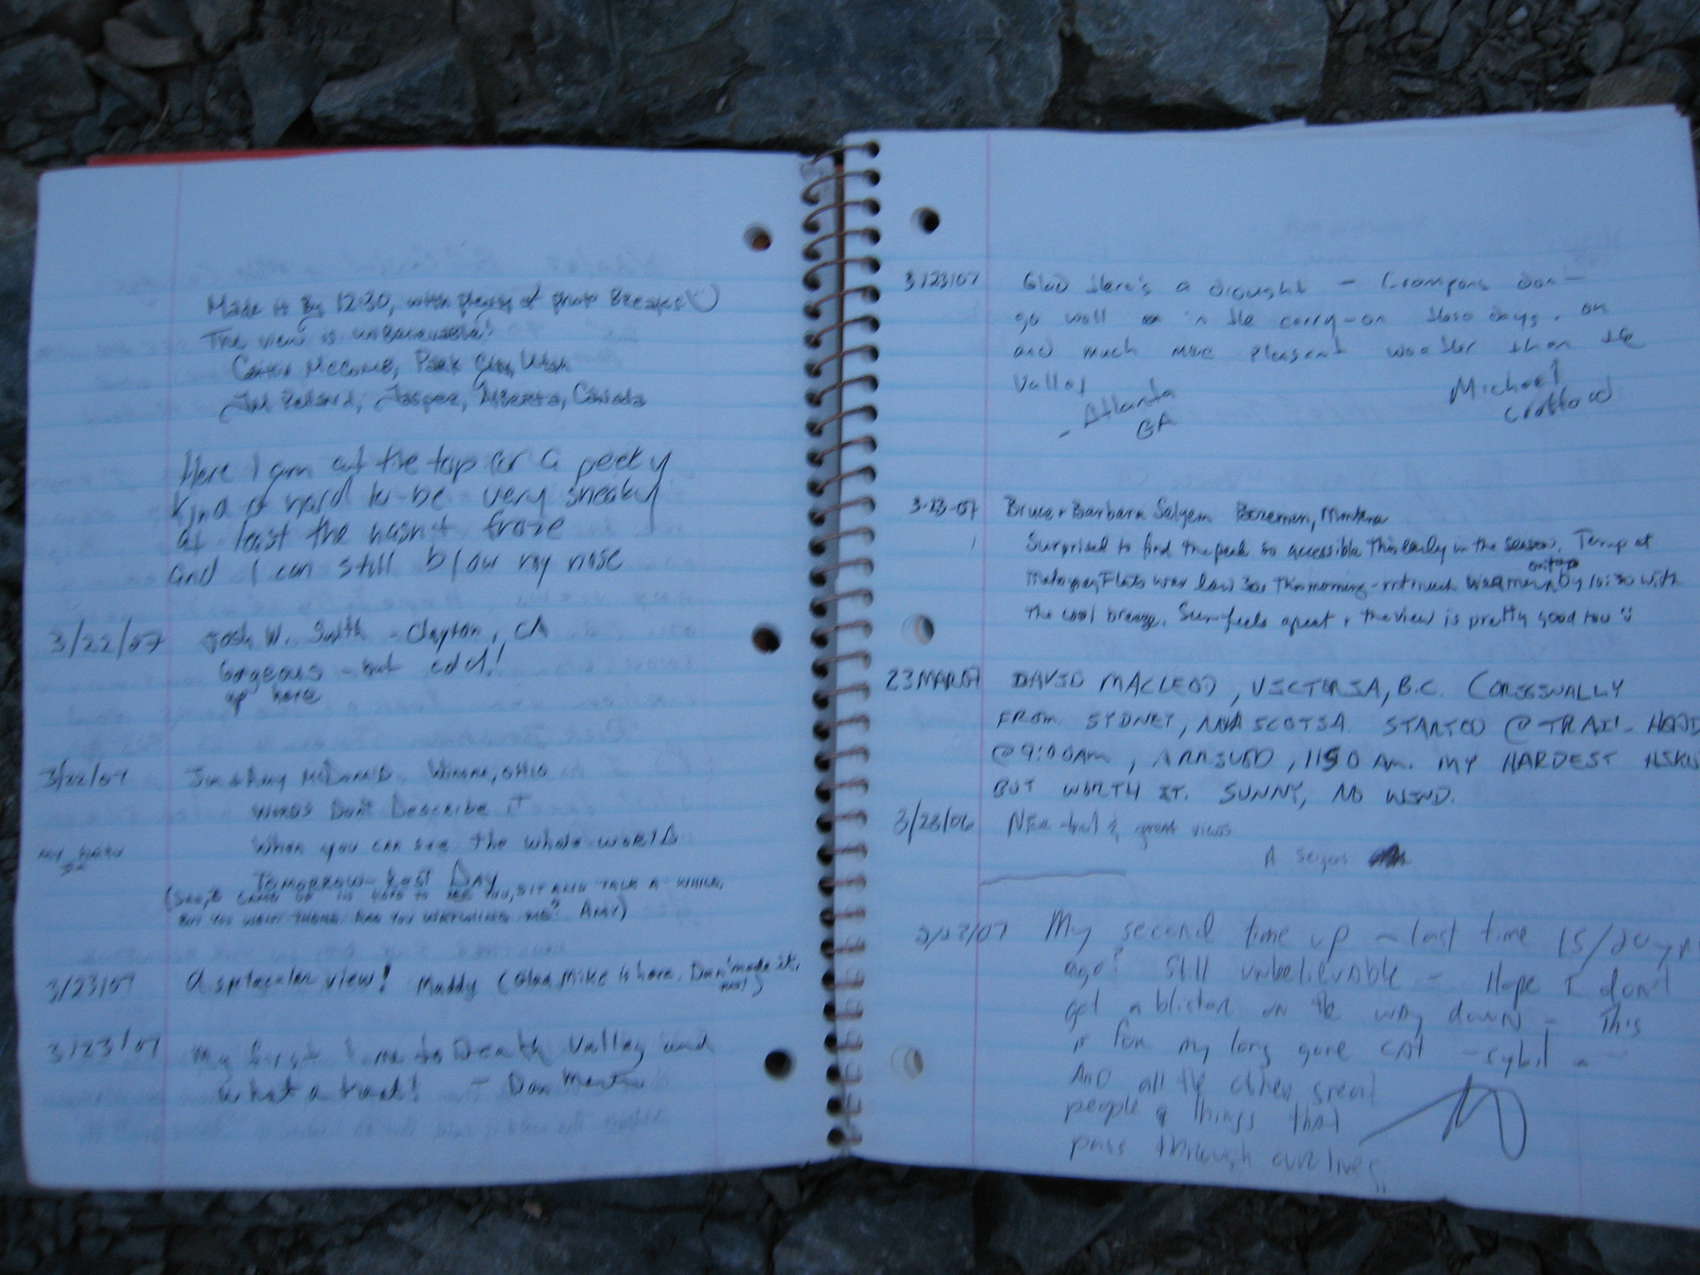 Made it by 12:30, with plenty of photo Breaks
The view is unbelievable!
Park City, Utah
Jasper, Alberta, Canada
Here I am at the top for a peeky
Kind of hard to be very sneaky
at least the hasn't froze
and I can still blow my nose
3/22/07 Josh W. Smith - Clayton, CA
Gorgeous - but cold!
up here
3/22/07 McDaniel, Ohio
Words Don't Describe it
When you can see the whole world
Tomorrow - Last Day
CAME UP TO SEE YOU, SIT AND TALK A WHILE,
BUT YOU WEREN'T THERE. ARE YOU WATCHING ME? AMY)
3/23/07 A spectacular view! Maddy (Glad Mike is here. Dan made it,
too!)
3/23/07 My first time to Death Valley and
what a treat! - Dan
3/23/07 Glad there's a drought - Crampons don't
go well in the carry-on these days.
and much more pleasant weather than the
Valley
- Atlanta
GA
Michael
Crafford
3-23-07 Bruce + Barbara Salyem Bozeman, Montana
Surprised to find the peak so accessible this early in the season. Temp at
Mahogany Flats was low 30s this morning - not much warmer on top by 10:30 with
the cool breeze. Sun feels great + the view is pretty good too
23 MAR 07 DAVID MACLEOD, VICTORIA, B.C. (ORIGINALLY
FROM SYDNEY, NOVA SCOTIA. STARTED @ TRAIL HEAD
@ 9:00 AM, ARRIVED, 1150 AM. MY HARDEST HIKE
BUT WORTH IT. SUNNY, NO WIND.
3/23/06 trail & great views
A
3/23/07 My second time up - last time 15/20 yr
ago? Still unbelievable - Hope I don't
get a blister on the way down - This
is for my long gone cat - Cybil -
And all the other great
people & things that
pass through our lives